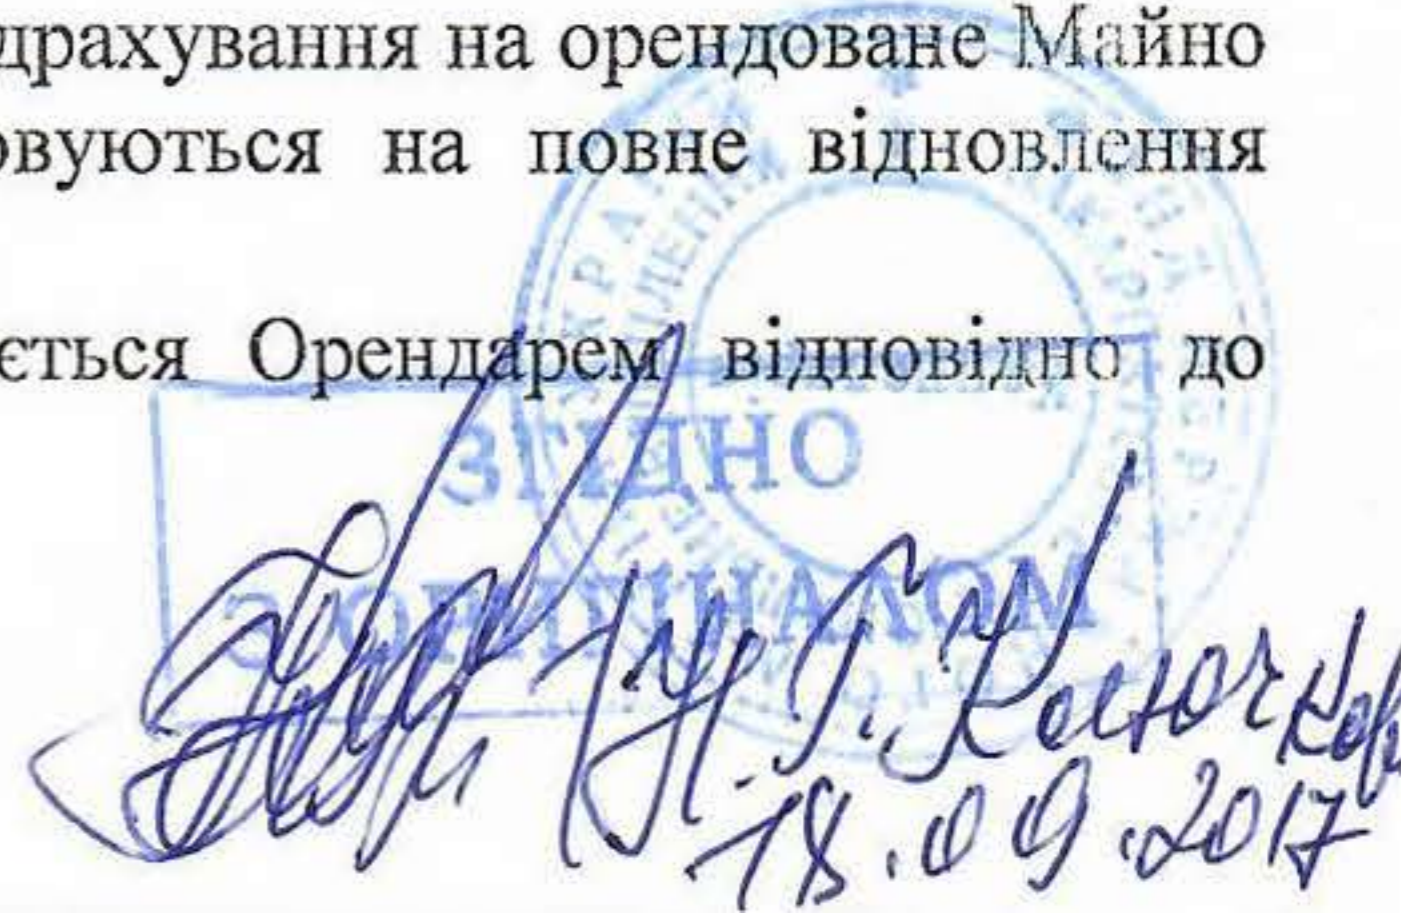 драхування на орендоване Майно
овуються на повне відновлення
ється Орендарем відповідно до
ЗГІДНО
З ОРИГІНАЛОМ
18.09.2017